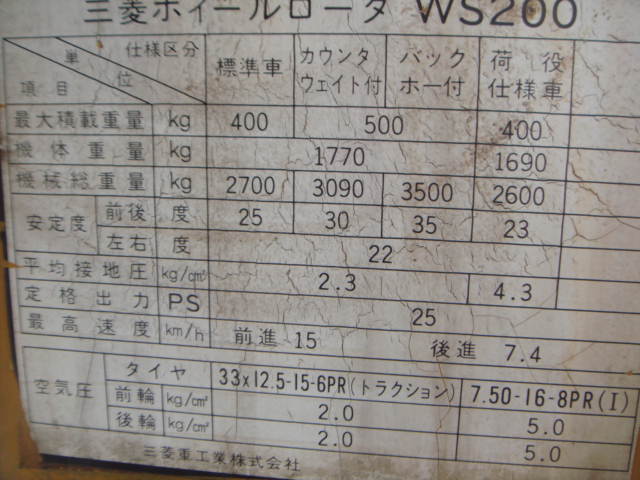 三菱ホイールローダ WS200
項目 単位 仕様区分 標準車 カウンタウェイト付 バックホー付 荷役仕様車
最大積載重量 kg 400 500 400
機体重量 kg 1770 1690
機械総重量 kg 2700 3090 3500 2600
安定度 前後 度 25 30 35 23
左右 度 22
平均接地圧 kg/cm² 2.3 4.3
定格出力 PS 25
最高速度 km/h 前進 15 後進 7.4
空気圧 タイヤ 33x12.5-15-6PR(トラクション) 7.50-16-8PR(I)
前輪 kg/cm² 2.0 5.0
後輪 kg/cm² 2.0 5.0
三菱重工業株式会社